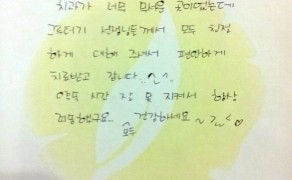 치과가 너무 무서운 곳이었는데
그르터기 선생님들께서 모두 친절
하게 대해 주셔서 편안하게
치료받고 갑니다 ^_^
약속 시간 잘 못 지켜서 항상
죄송했구요.. 모두 건강하세요~